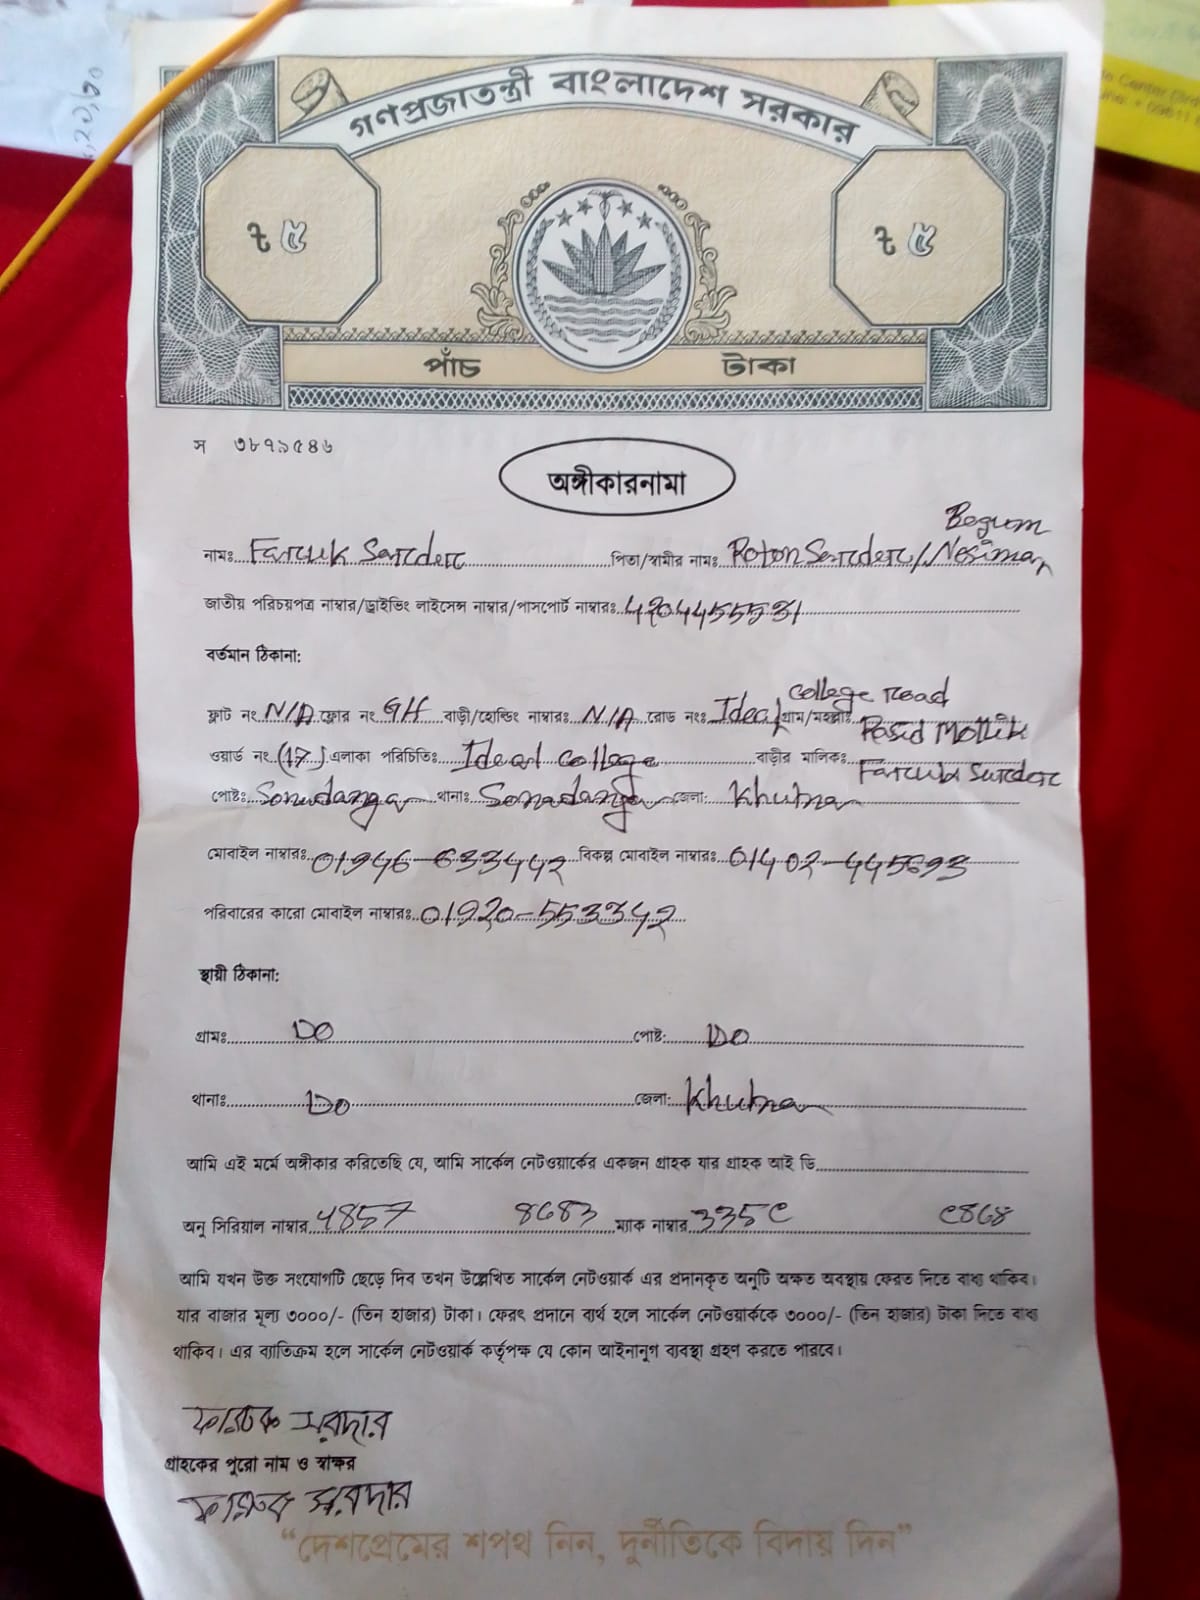 গণপ্রজাতন্ত্রী বাংলাদেশ সরকার
৳ ৫ ৳ ৫
পাঁচ টাকা
স ৩৮৭৯৫৪৬
অঙ্গীকারনামা
Begum
নামঃ Faruk Sarder পিতা/স্বামীর নামঃ Roton Sarder/Nosiman
জাতীয় পরিচয়পত্র নাম্বার/ড্রাইভিং লাইসেন্স নাম্বার/পাসপোর্ট নাম্বারঃ 4204455531
বর্তমান ঠিকানা:
college road
ফ্লাট নং N/A ফ্লোর নং GH বাড়ী/হোল্ডিং নাম্বারঃ N/A রোড নংঃ Ideal গ্রাম/মহল্লাঃ
Rasid Mollik
ওয়ার্ড নং (17) এলাকা পরিচিতিঃ Ideal college বাড়ীর মালিকঃ Faruk Sarder
পোষ্টঃ Sonadanga থানাঃ Sonadanga জেলা: Khulna
মোবাইল নাম্বারঃ 01946-633442 বিকল্প মোবাইল নাম্বারঃ 01402-445693
পরিবারের কারো মোবাইল নাম্বারঃ 01920-553342
স্থায়ী ঠিকানা:
গ্রামঃ DO পোষ্ট: DO
থানাঃ DO জেলা: Khulna
আমি এই মর্মে অঙ্গীকার করিতেছি যে, আমি সার্কেল নেটওয়ার্কের একজন গ্রাহক যার গ্রাহক আই ডি
অনু সিরিয়াল নাম্বার 4857 8683 ম্যাক নাম্বার 335C C868
আমি যখন উক্ত সংযোগটি ছেড়ে দিব তখন উল্লেখিত সার্কেল নেটওয়ার্ক এর প্রদানকৃত অনুটি অক্ষত অবস্থায় ফেরত দিতে বাধ্য থাকিব।
যার বাজার মূল্য ৩০০০/- (তিন হাজার) টাকা। ফেরৎ প্রদানে ব্যর্থ হলে সার্কেল নেটওয়ার্ককে ৩০০০/- (তিন হাজার) টাকা দিতে বাধ্য
থাকিব। এর ব্যাতিক্রম হলে সার্কেল নেটওয়ার্ক কর্তৃপক্ষ যে কোন আইনানুগ ব্যবস্থা গ্রহণ করতে পারবে।
ফারুক সরদার
গ্রাহকের পুরো নাম ও স্বাক্ষর
ফারুক সরদার
“দেশপ্রেমের শপথ নিন, দুর্নীতিকে বিদায় দিন”